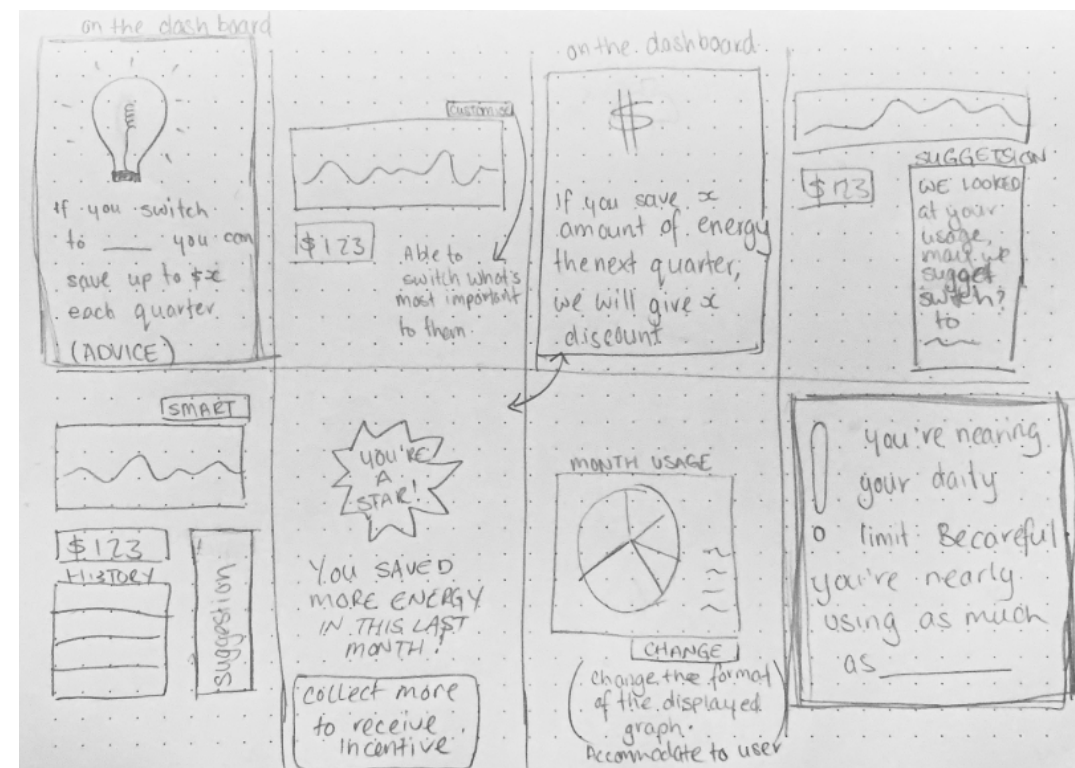 on the dashboard
If you switch
to ____ you can
save up to $x
each quarter
(ADVICE)
customise
$123
Able to
switch what's
most important
to them.
on the dashboard
$
If you save x
amount of energy
the next quarter,
we will give x
discount
$123
SUGGETSION
WE LOOKED
at your
usage,
may we
sugget
switch?
to
SMART
$123
HISTORY
suggestion
YOU'RE
A
STAR!
YOU SAVED
MORE ENERGY
IN THIS LAST
MONTH!
collect more
to receive
incentive
MONTH USAGE
CHANGE
(change the format
of the displayed
graph.
Accommodate to user)
! you're nearing
your daily
limit. Be careful
you're nearly
using as much
as ________